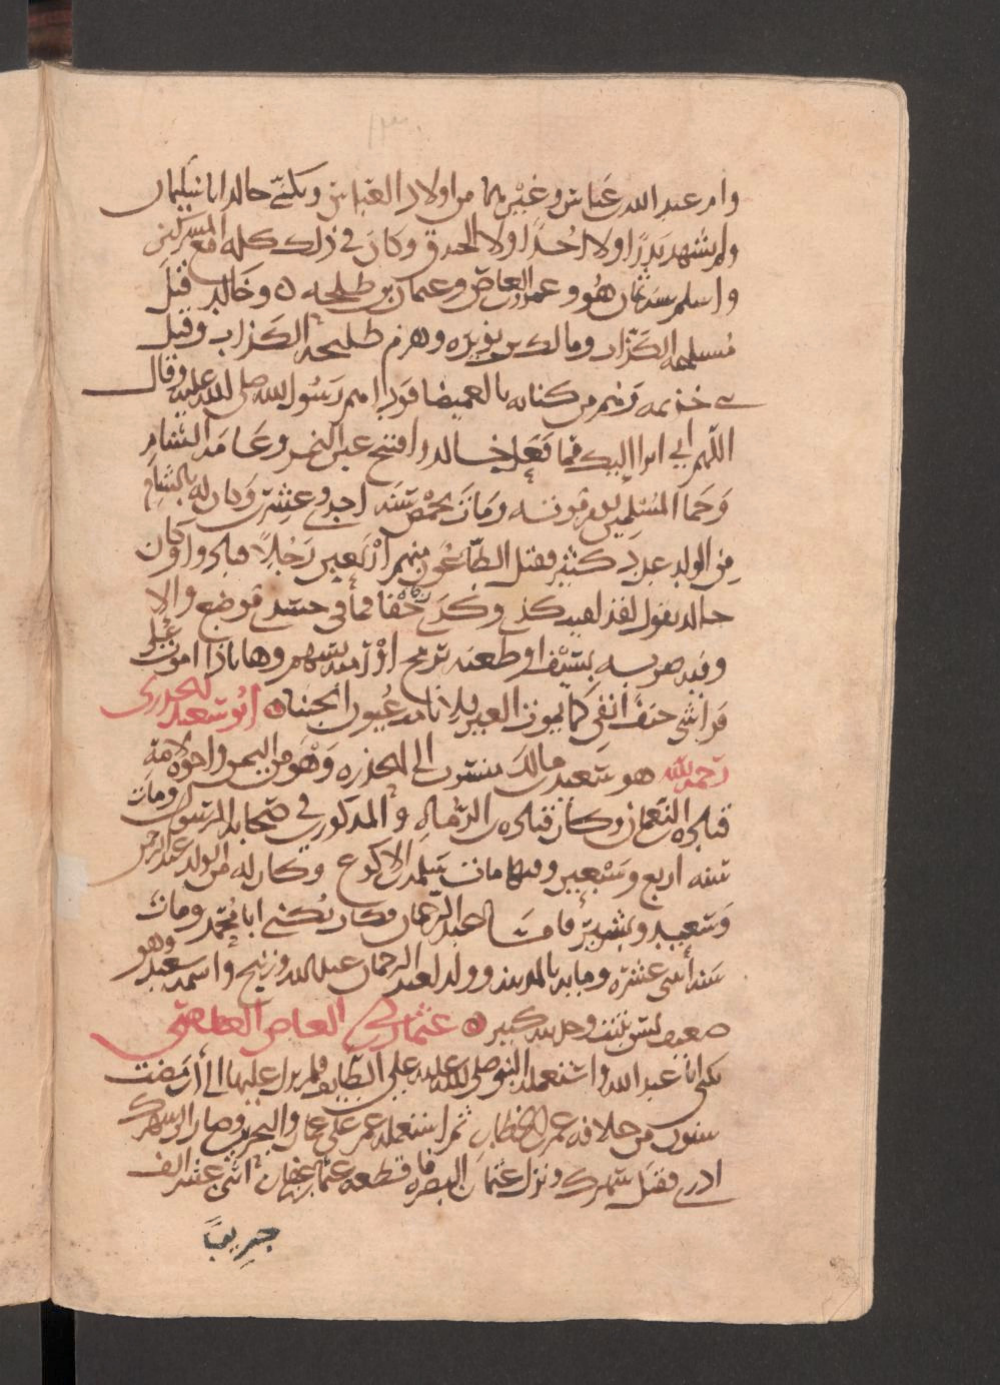 وام عبد الله بن عباس وغيرهما من اولاد العباس ويكنى خالد ابا سليمان
ولم يشهد بدرا ولا احدا ولا الخندق وكان في ذلك كله مع المشركين
واسلم سنة ثمان هو و عمرو بن العاص وعثمان بن طلحه ٥ وخالد قتل
مسيلمة الكذاب ومالك بن نويره وهزم طليحه الكذاب وقتل
بني خذيمه قوم من كنانه بالغميضا فوداهم رسول الله صلى الله عليه وقال
اللهم اني ابرا اليك مما فعل خالد وافتتح عين التمر وعامة الشام
وحما المسلمين يوم موته ومات بحمص سنة احدى وعشرين وكان له بالشام
من الولد عدد كثير فقتل الطاعون منهم اربعين رجلا فبادوا وكان
خالد يقول لقد لقيت كذى وكذى زحفا فما في جسدي موضع والا
وفيه ضربه بسيف او طعنه برمح او رميه بسهم وها انا ذا اموت على
فراشي حتف انفي كما يموت العير فلا نامت عيون الجبنا ٥ ابو سعيد الخدري
رحمه الله هو سعيد بن مالك ينسب الى الخدره وهو من اليمن واخوه لامه
قتاده بن النعمان وكان قتاده من الرماه والمذكورين في صحابه الرسول ومات
سنه اربع وسبعين وفيها مات سلمه بن الاكوع وكان له من الولد عبد الرحمن
وسعيد وبشير فاما عبد الرحمان فكان يكنى ابا محمد ومات
سنه اثنى عشره ومايه بالمدينه وولد لعبد الرحمان عبد الله وربيح واسمه سعيد وهو
ضعيف ليس بثبت وحديثه كبير ٥ عثمان بن ابي العاص الثقفي
يكنى ابا عبد الله واستعمله النبي صلى الله عليه على الطايف فلم يزل عليها الى ان مضت
سنون من خلافه عمر بن الخطاب ثم استعمله عمر على عمان والبحرين وصار الى شهرك
اذى فقتل شهرك ونزل عثمان البصره فاقطعه عثمان بن عفان اثنى عشر الف
جريبا